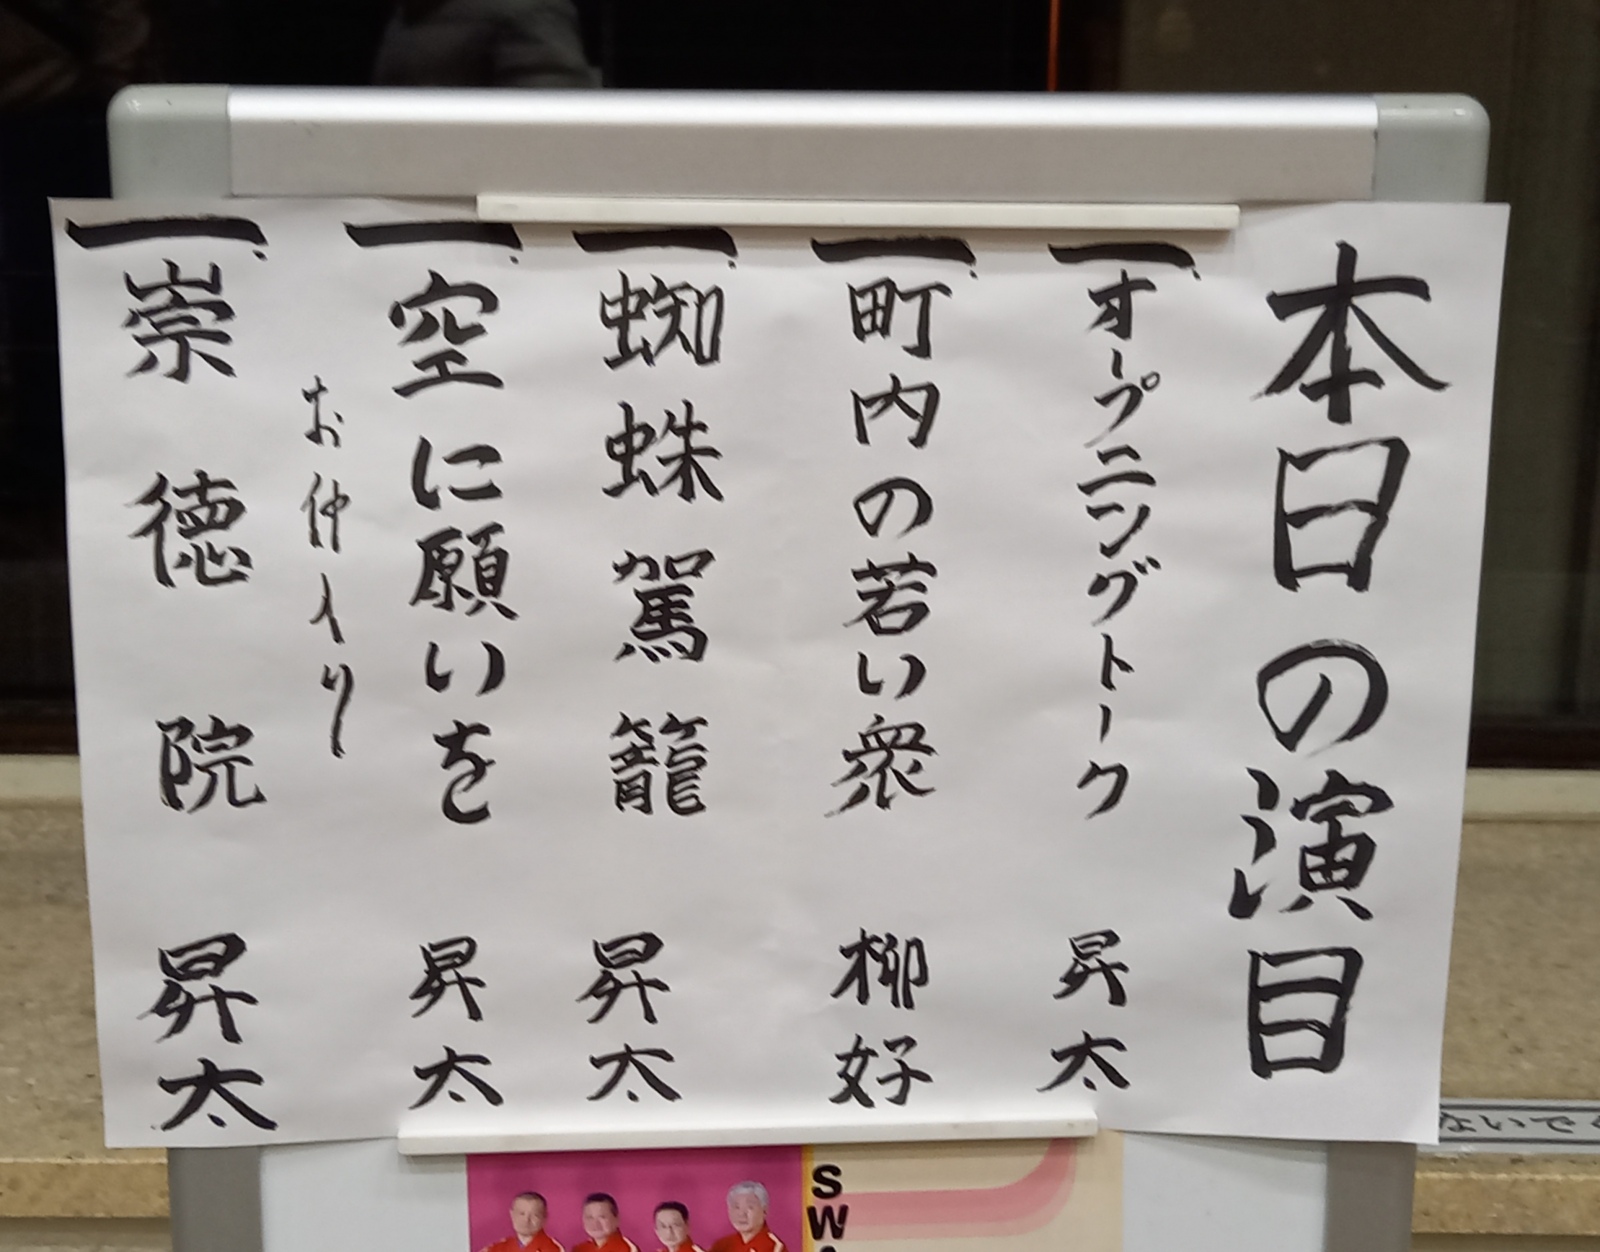 本日の演目
一、オープニングトーク 昇太
一、町内の若い衆 柳好
一、蜘蛛駕籠 昇太
一、空に願いを 昇太
お仲入り
一、崇徳院 昇太
SW
ないで